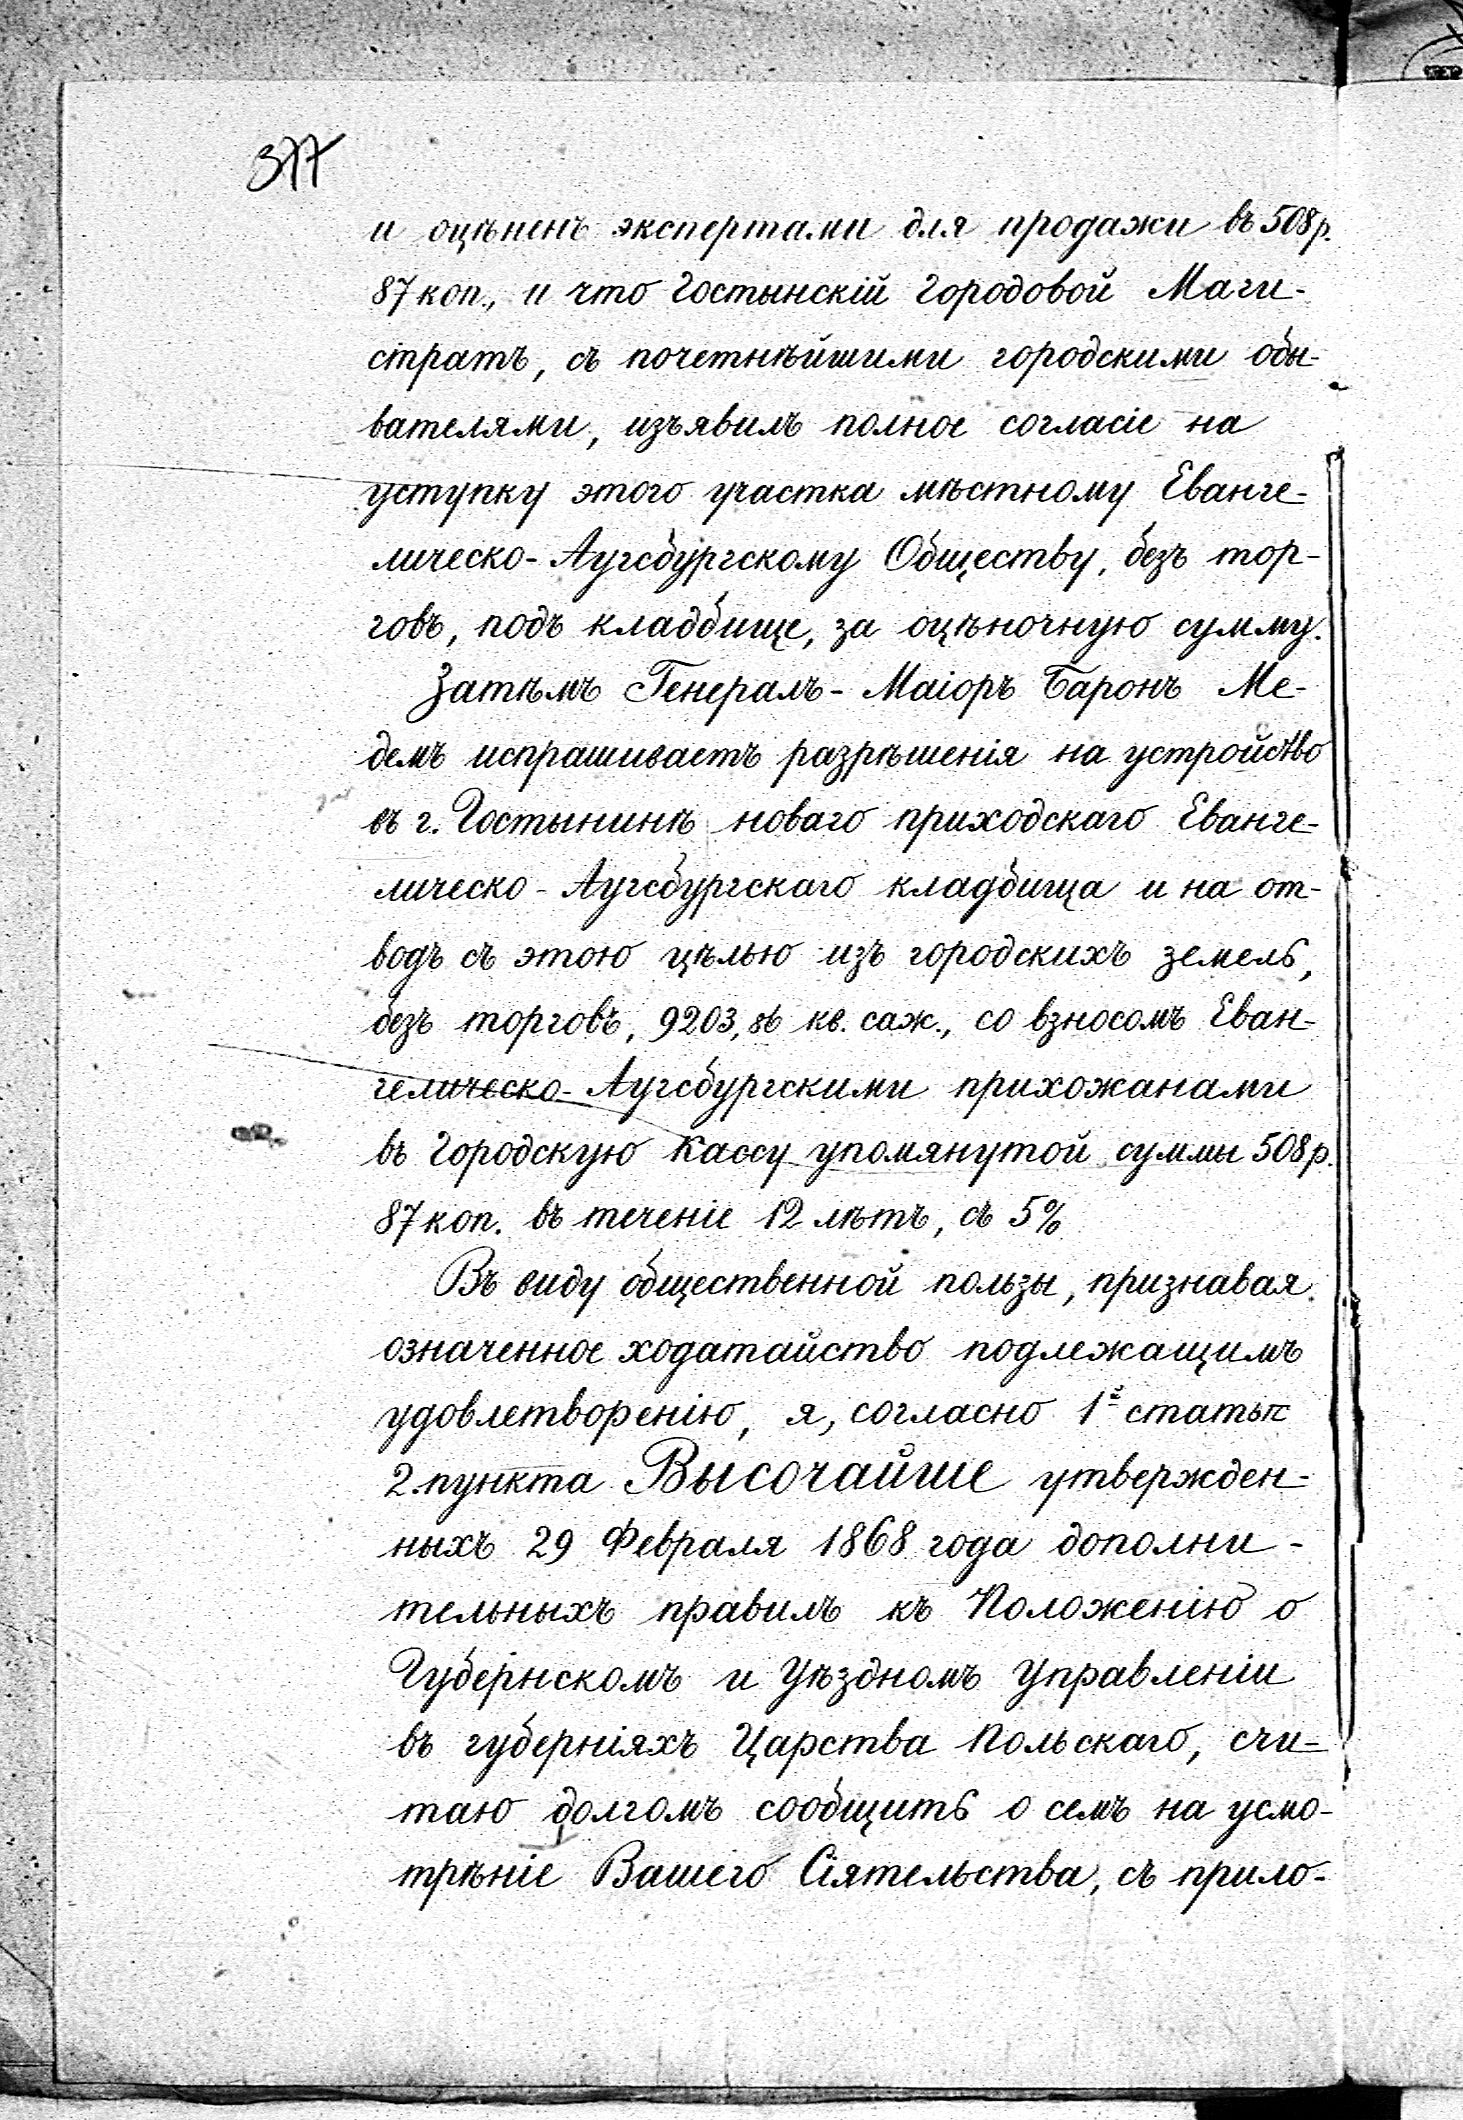 377
и оцѣненъ экспертами для продажи въ 508 р.
87 коп., и что Гостынскій Городовой Маги-
стратъ, съ почетнѣйшими городскими обы-
вателями, изъявилъ полное согласіе на
уступку этого участка мѣстному Еванге-
лическо-Аугсбургскому Обществу, безъ тор-
говъ, подъ кладбище, за оцѣночную сумму.
Затѣмъ Генералъ-Маіоръ Баронъ Ме-
демъ испрашиваетъ разрѣшенія на устройство
въ г. Гостынинѣ новаго приходскаго Еванге-
лическо-Аугсбургскаго кладбища и на от-
водъ съ этою цѣлью изъ городскихъ земель,
безъ торговъ, 9203,86 кв. саж., со взносомъ Еван-
гелическо-Аугсбургскими прихожанами
въ Городскую Кассу упомянутой суммы 508 р.
87 коп. въ теченіе 12 лѣтъ, съ 5%
Въ виду общественной пользы, признавая
означенное ходатайство подлежащимъ
удовлетворенію, я, согласно 1й статьѣ
2. пункта Высочайше утвержден-
ныхъ 29 Февраля 1868 года дополни-
тельныхъ правилъ къ Положенію о
Губернскомъ и Уѣздномъ Управленіи
въ губерніяхъ Царства Польскаго, счи-
таю долгомъ сообщить о семъ на усмо-
трѣніе Вашего Сіятельства, съ прило-